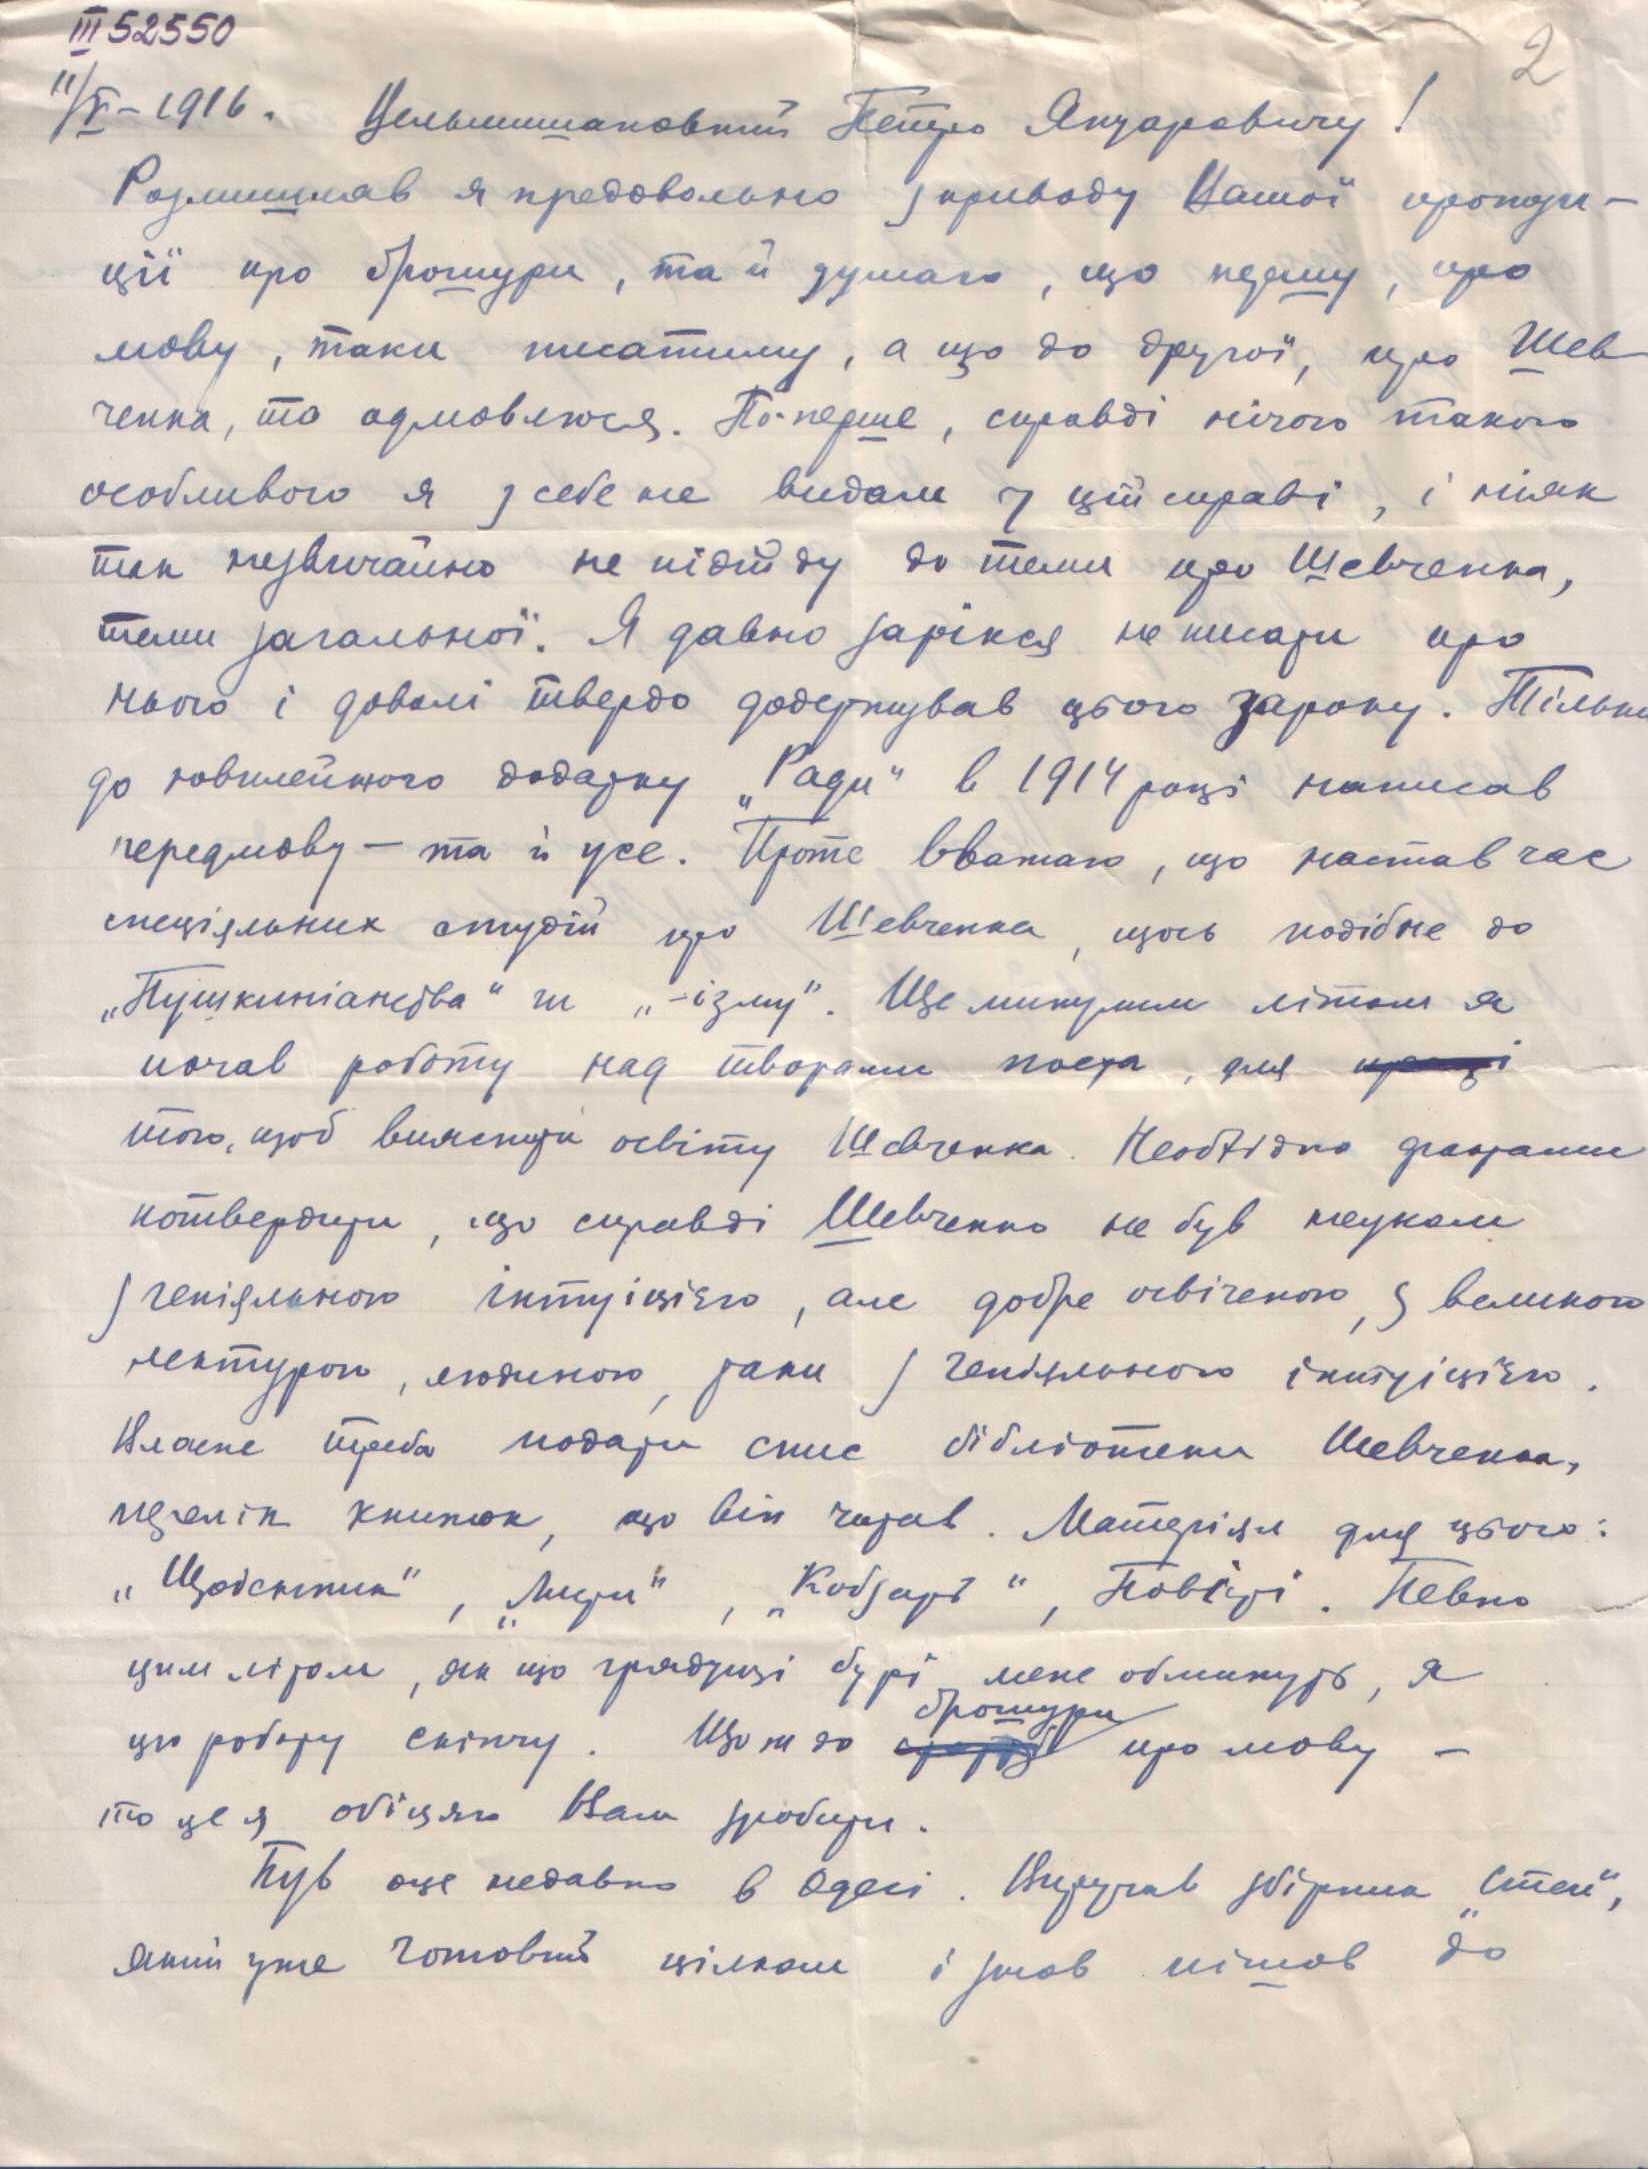 III 52550
2
11/V – 1916. Вельмишановний Петро Януаровичу!
Розмишляв я предовольно з приводу Вашої пропози-
ції про брошури, та й думаю, що першу, про
мову, таки писатиму, а що до другої, про Шев
ченка, то одмовляюся. По-перше, справді нічого такого
особливого я з себе не видам у цій справі, і ніяк
так незвичайно не підійду до теми про Шевченка,
теми загальної. Я давно зарікся не писати про
нього і доволі твердо додержував цього зароку. Тільки
до ювилейного додатку „Ради“ в 1914 році написав
передмову – та й усе. Проте вважаю, що настав час
спеціяльних студій про Шевченка, щось подібне до
„Пушкиніанства“ чи „-ізму“. Ще минулим літом я
почав роботу над творами поета, для праці
того, щоб вияснити освіту Шевченка. Необхідно фактами
потвердити, що справді Шевченко не був неуком
з геніяльною інтуіцією, але добре освіченою, з великою
лектурою, людиною, таки з геніяльною інтуіцією.
Власне треба подати спис бібліотеки Шевченка,
перелік книжок, що він читав. Матеріял для цього:
„Щоденник“, „Листи“, „Кобзарь“, Повісті. Певно
цим літом, як що грядущі бурі мене обминуть, я
цю роботу скінчу. Що ж до брошури про мову –
то це я обіцяю Вам зробити.
Був оце недавно в Одесі. Виручав збірник „Степ“,
який уже готовий цілком і знов пішов до